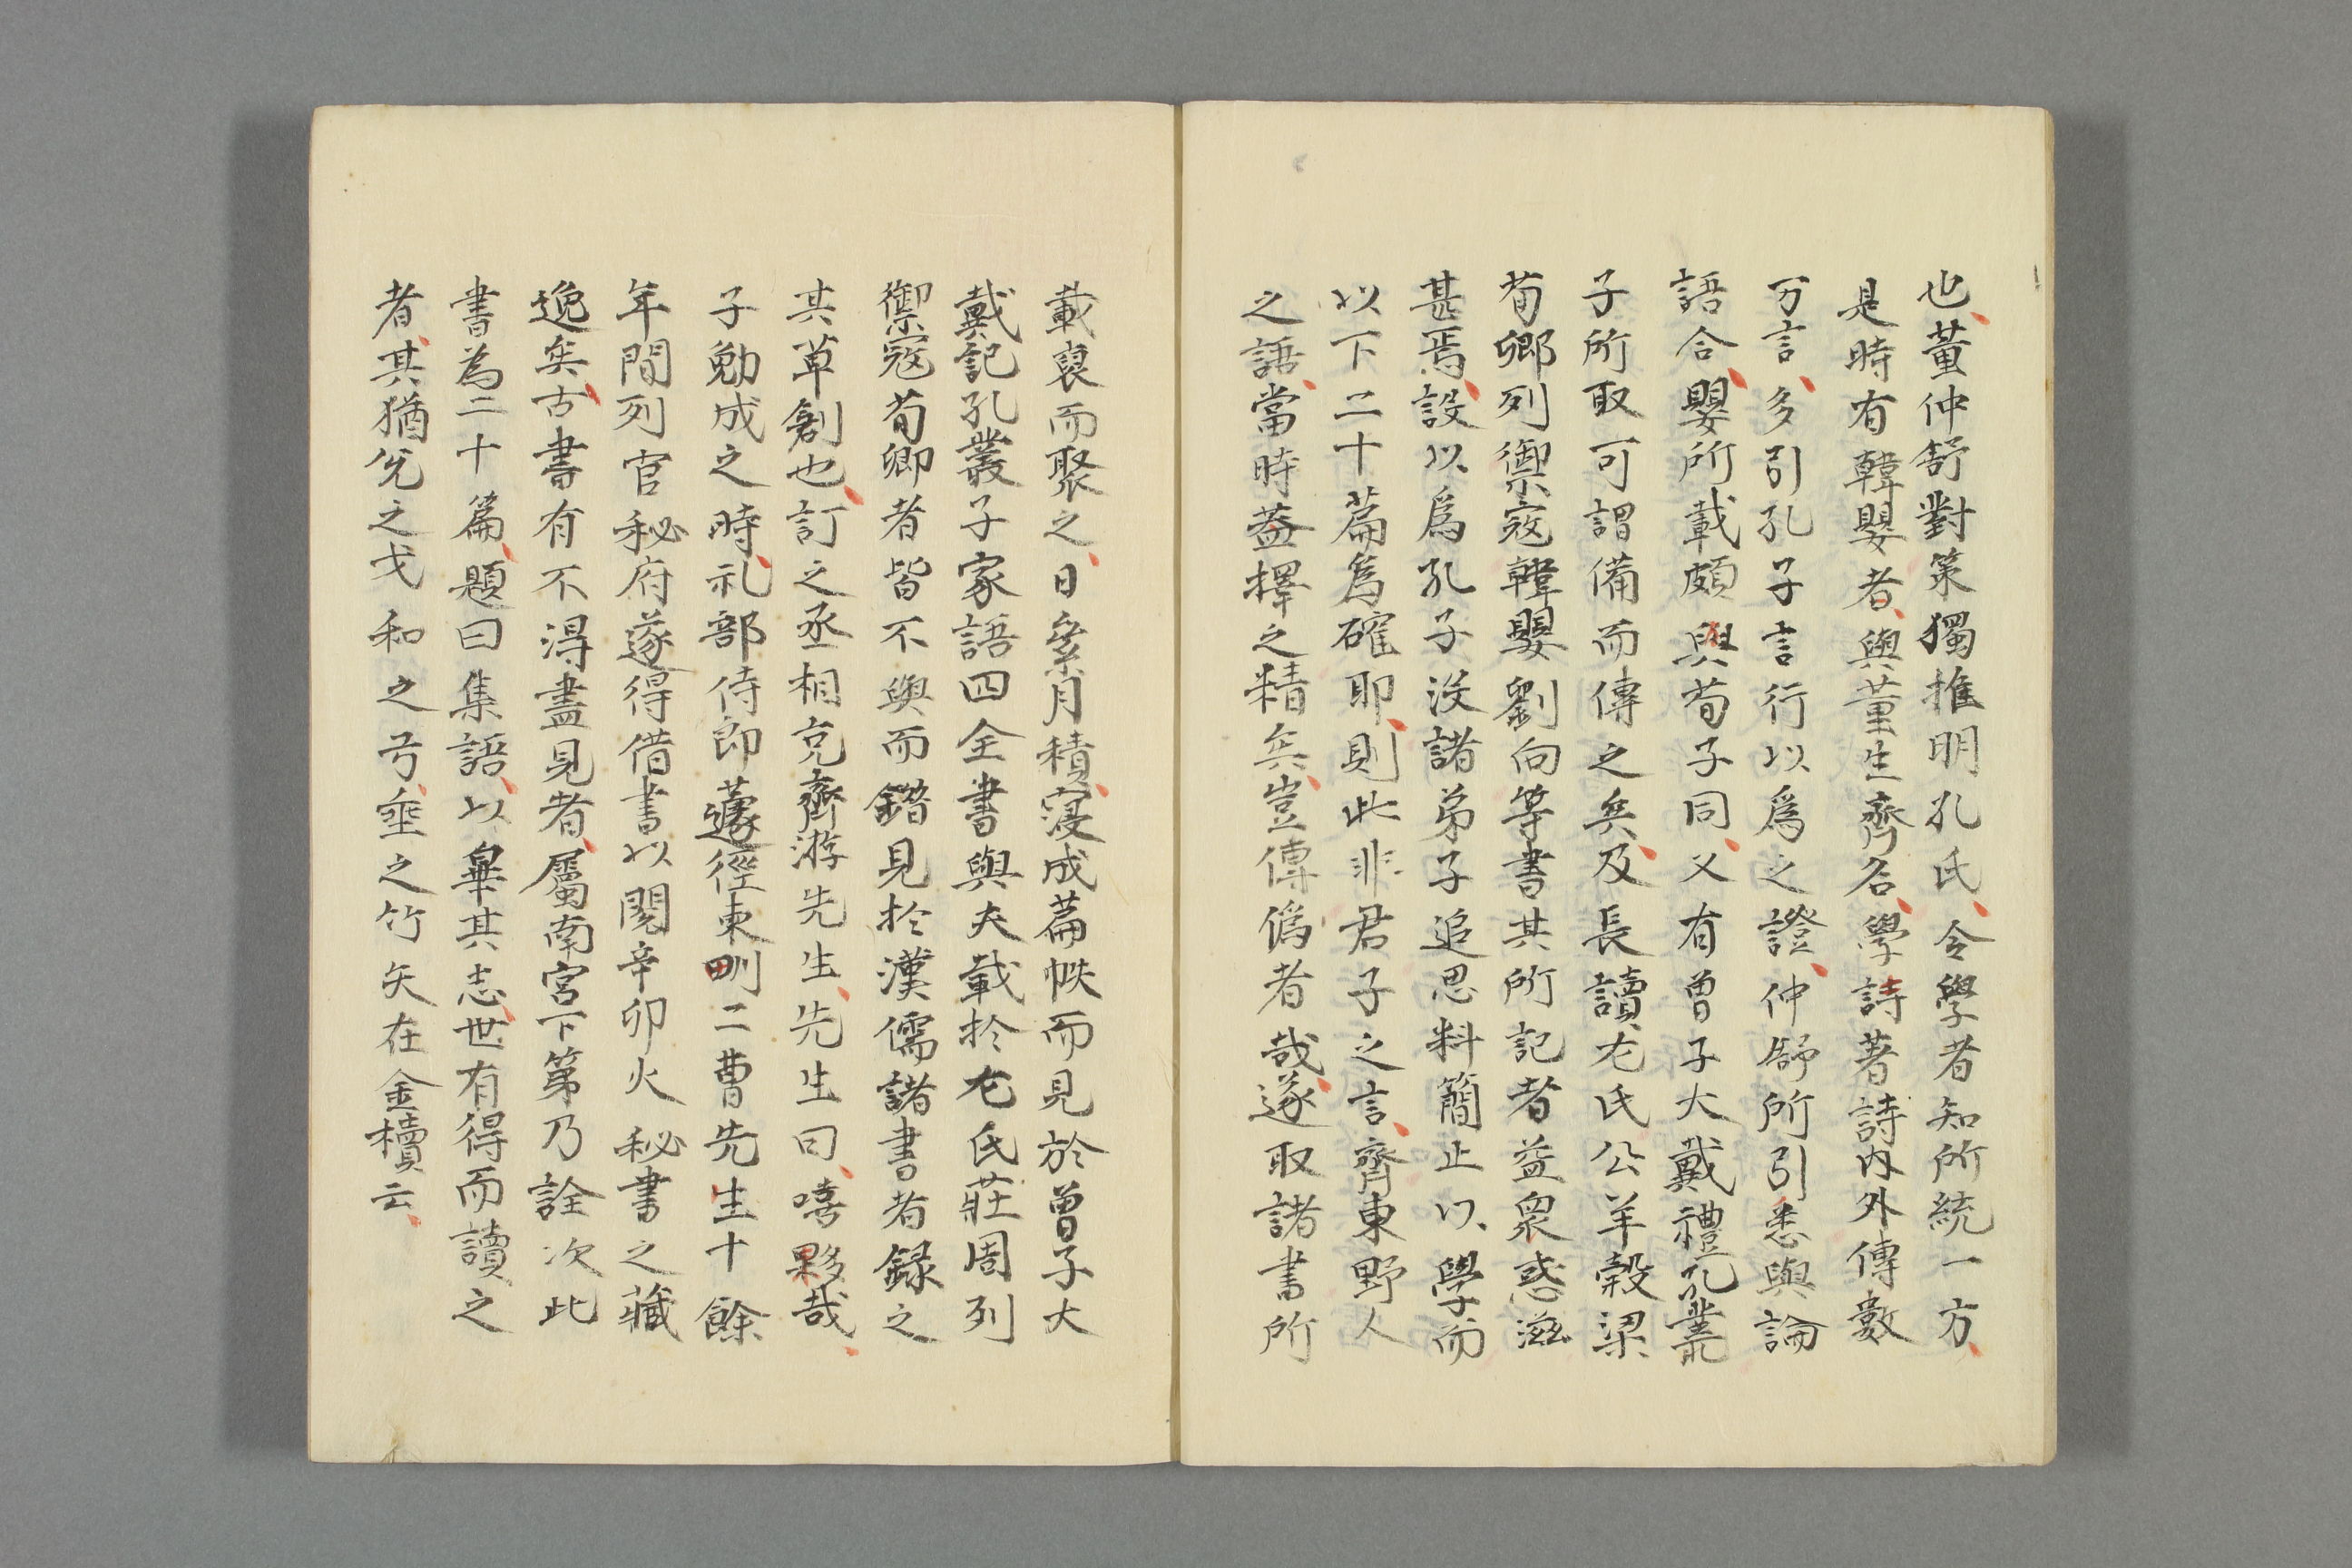 也董仲舒對策獨推明孔氏令學者知所統一方
是時有韓嬰者與董生齊名學詩著詩内外傳數
万言多引孔子言行以爲之證仲舒所引悉與論
語合嬰所載頗與荀子同又有曾子大戴禮孔叢
子所取可謂備而傳之矣及長讀左氏公羊穀梁
荀卿列禦寇韓嬰劉向等書其所記者益衆惑滋
甚焉設以爲孔子没諸弟子追思料簡止以學而
以下二十篇爲確耶則此非君子之言齊東野人
之語當時蓋擇之精矣豈傳僞者哉遂取諸書所
載裒而聚之日絫月積寖成篇帙而見於曾子大
戴記孔叢子家語四全書與夫載扵左氏莊周列
禦寇荀卿者皆不與而錯見扵漢儒諸書者録之
其草創也訂之丞相克齋游先生先生曰嘻夥哉
子勉成之時礼部侍郎蘧徑東畎二曹先生十餘
年間列官秘府遂得借書以閱辛卯火秘書之藏
逸矣古書有不得盡見者屬南宮下第乃詮次此
書為二十篇題曰集語以畢其志世有得而讀之
者其猶兊之戈和之弓埀之竹矢在金櫝云